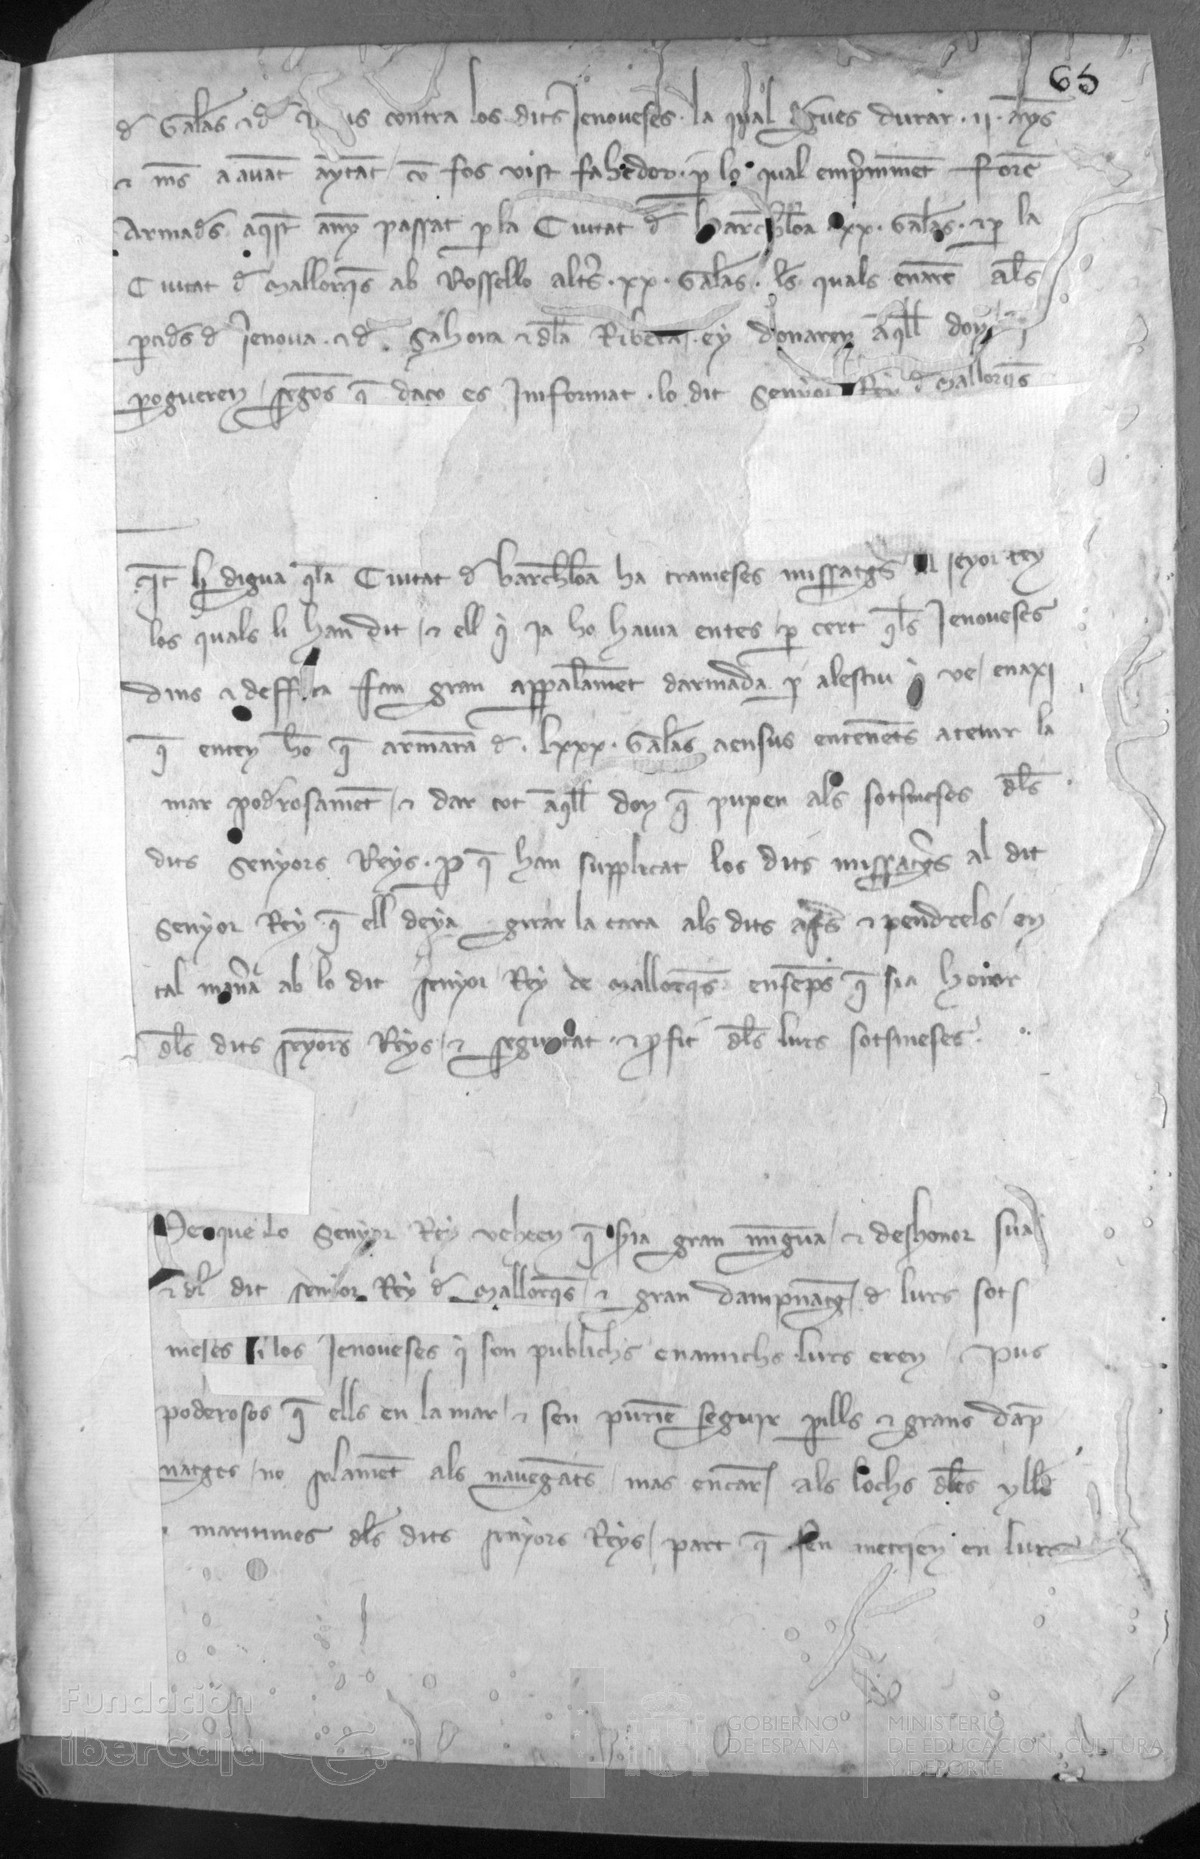 65
d galeas ⁊ d contra los dits Jenoueses · la qual degues durar · ij · anys
⁊ mes a auant aytant com fos vist fahedor · per lo qual emprimament Foren
Armades aquest any passat per la Ciutat d barchna xx · Galeas · ⁊ per la
Ciutat d mallorqs ab Rossello altrs · xx · Galeas · les quals anaren als
partides d Jenoua · ⁊ d Sahona ⁊ dla Ribera · ey donaren aqll dan
pogueren segons q daco es Informat · lo dit Senyor Rey d mallorqs
qla Ciutat d barchna ha trameses missatgs al seyor rey
los quals li han dit ⁊ ell q ja ho hauia entes per cert qls Jenoueses
dins ⁊ deffora fan gran appalament darmada per alestiu q ve enaxi
q enten hom q armaran d · lxxx · Galeas aensus entenents atenir la
mar poderosament ⁊ dar tot aqll dan q pusen als sotsmeses dls
dits Senyors Reys · Per q han supplicat los dits missatgrs al dit
Senyor Rey q ell deya girar la cara als dits afers ⁊ pendrels en
tal manera ab lo dit senyor Rey de mallorqs ensemps q sia honor
dls dits seyors Reys ⁊ seguretat · ⁊ profit dls lurs sotsmeses ·
Perque lo Senyor Rey vehen q sia gran mingua ⁊ deshonor sua
⁊ dl dit senyor Rey d mallorqs ⁊ gran dampnatge d lurs sots
meses si los Jenoueses q son publichs enamichs lurs eren Pus
poderosos q ells en la mar ⁊ sen purien seguir perills ⁊ grans damp
natges no solament als nauegants mas encara als lochs dles ylles
maritimes dls dits senyors Reys part q sen metrien en lurs
Fundación
iberCaja
GOBIERNO
DE ESPAÑA
MINISTERIO
DE EDUCACIÓN, CULTURA
Y DEPORTE